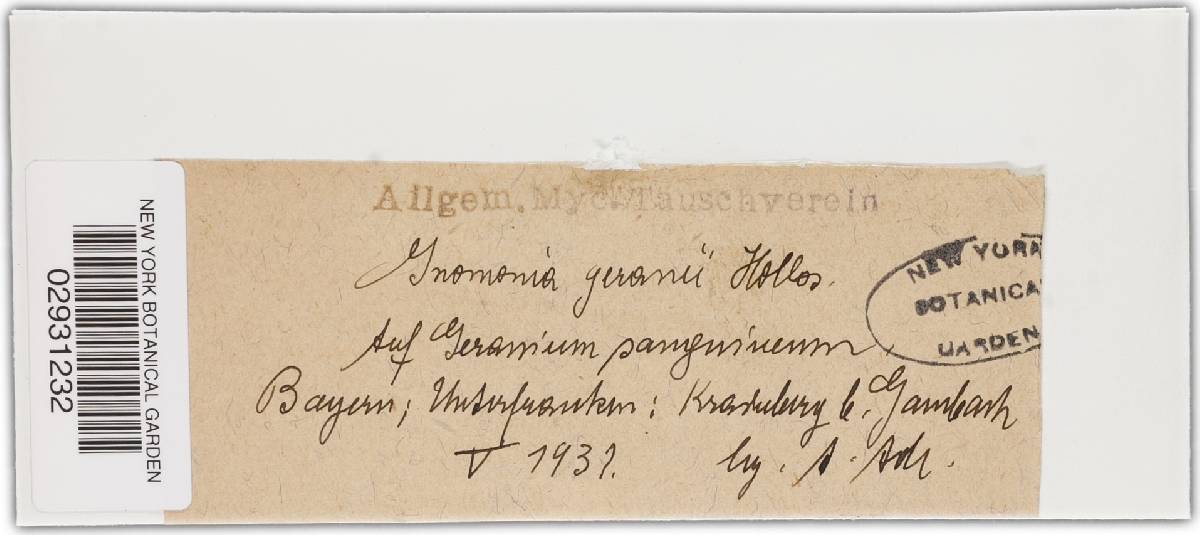 Allgem. Myc. Tauschverein
Gnomonia geranii Hollos.
Auf Geranium sanguineum
Bayern; Unterfranken: Krainberg b. Gambach
V 1932. leg. A. Ade.
NEW YORK
BOTANICAL
GARDEN
NEW YORK BOTANICAL GARDEN
02931232